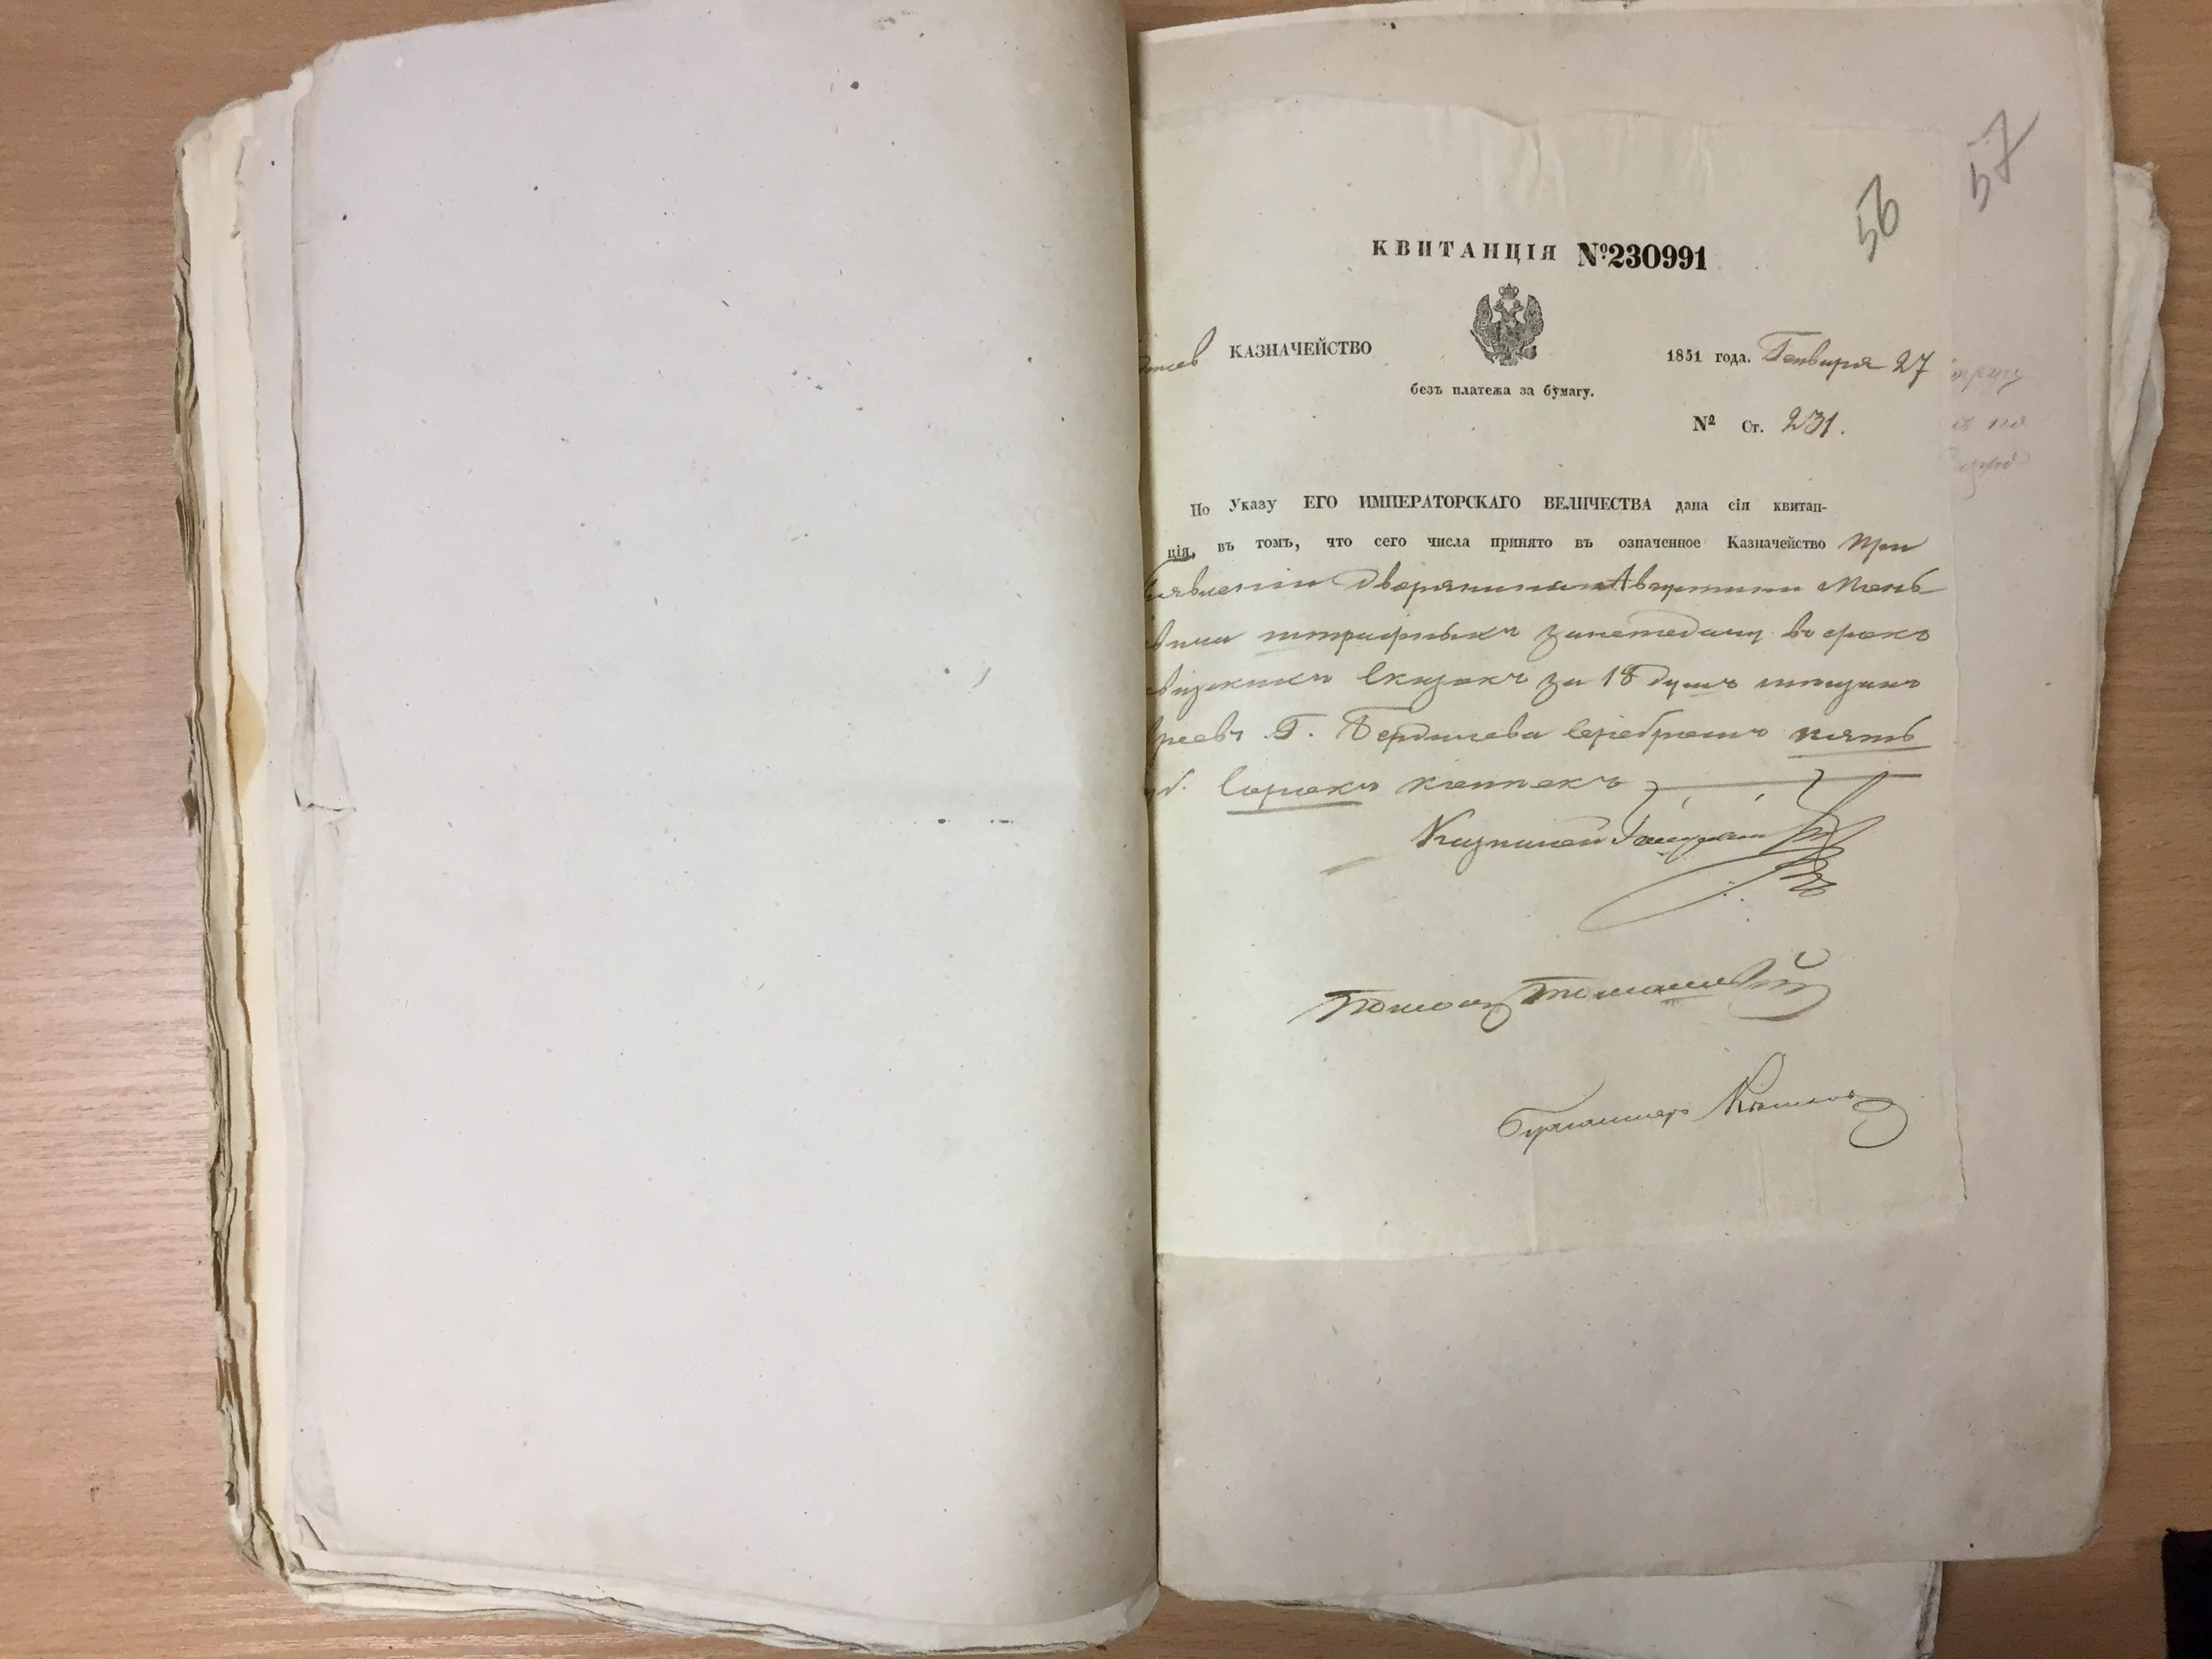 57
56
КВИТАНЦІЯ №230991
КАЗНАЧЕЙСТВО
1851 года. Генваря 27
безъ платежа за бумагу.
№ Ст. 231.
По Указу ЕГО ИМПЕРАТОРСКАГО ВЕЛИЧЕСТВА дана сія квитан-
ція, въ томъ, что сего числа принято въ означенное Казначейство При
явленіи дворянина Августина Мень
штрафныхъ занеподачу въ срокъ
сказокъ за 18 душъ мещанъ
Г. Бердичева серебромъ пять
сорокъ копеекъ
Казначей
Помощ Томашевскій
Бухгалтеръ